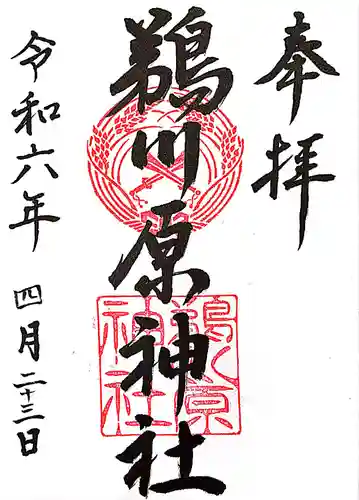 奉拝
鵜川原神社
令和六年 四月二十三日
鵜川原
神社